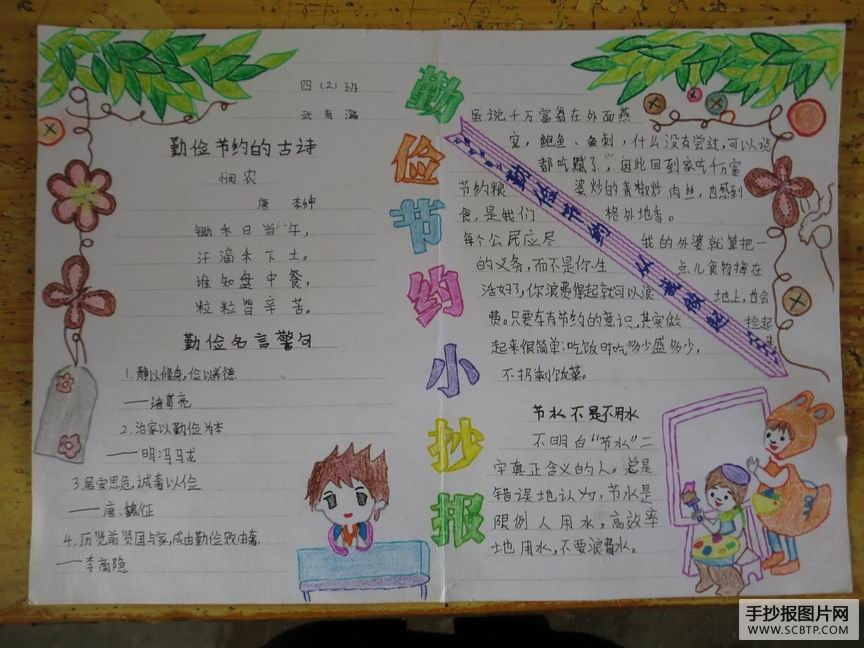 四（2）班
勤俭节约的古诗
悯农
唐 李绅
锄禾日当午，
汗滴禾下土。
谁知盘中餐，
粒粒皆辛苦。
勤俭名言警句
1.静以修身，俭以养德
——诸葛亮
2.治家以勤俭为本
——明.冯马龙
3.居安思危，诫奢以俭
——唐、魏征
4.历览前贤国与家，成由勤俭败由奢
——李商隐
勤俭节约小抄报
虽说千万富翁在外面燕
窝，鲍鱼、鱼刺，什么没有尝过，可以说
都吃腻了，因此回到家吃千万富
婆炒的青椒炒肉丝，也感到
格外地香。
我的外婆就算把一
点儿食物掉在
地上，也会
捡起
来。
勤俭节约从我做起
节约粮
食，是我们
每个公民应尽
的义务，而不是你生
活好了，你浪费得起就可以浪
费。只要存有节约的意识，其实做
起来很简单：吃饭时吃多少盛多少，
不扔剩饭菜。
节水不是不用水
不明白“节水”二
字真正含义的人。总是
错误地认为，节水是
限例人用水，高效率
土也用水，不要浪费水。
手抄报图片网
WWW.SCBTP.COM